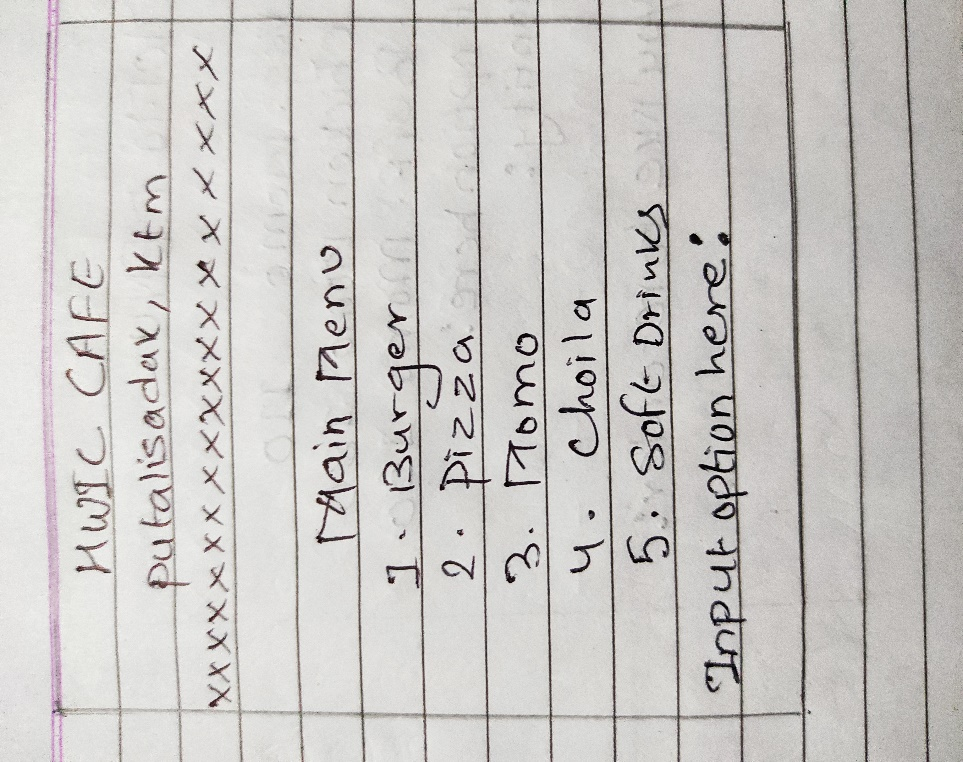 HWIC CAFE
putalisadak, ktm
xxxxxxxxxxxxxxxxxxx
Main Menu
1. Burger
2. Pizza
3. Momo
4. Choila
5. Soft Drinks
Input option here: